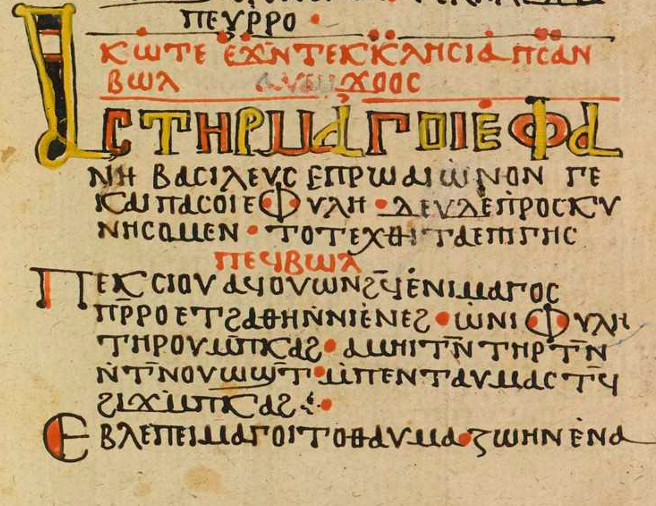 ⲡⲉⲩⲣⲣⲟ
ⲕⲱⲧⲉ ⲉϫⲛⲧⲉⲕⲕⲗⲏⲥⲓⲁ ⲡⲥⲁⲛ
ⲃⲱⲗ ϫⲟⲟⲥ
ⲁⲥⲧⲏⲣⲙⲁⲅⲟⲓⲉⲫⲁ
ⲛⲏ ⲃⲁⲥⲓⲗⲉⲩⲥ ⲉⲡⲣⲱⲁⲓⲱⲛⲟⲛ ⲅⲉ
ⲕⲁⲓⲡⲁⲥⲟⲓⲉⲫⲩⲗⲏ · ⲇⲉⲩⲇⲉⲡⲣⲟⲥⲕⲩ
ⲛⲏⲥⲱⲙⲉⲛ · ⲧⲟⲧⲉⲭⲑⲏⲧⲁⲉⲡⲓⲅⲏⲥ
ⲡⲉϥⲃⲱⲗ
ⲡⲉⲕⲥⲓⲟⲩ ⲁϥⲟⲩⲱⲛϩ̅ϥ̅ⲉⲛⲓⲙⲁⲅⲟⲥ
ⲡⲣ̅ⲣⲟ ⲉⲧϩⲁⲑⲏⲛ̀ⲛⲓⲉⲛⲉϩ · ⲱⲛⲓⲫⲩⲗⲏ
ⲧⲏⲣⲟⲩⲙ̅ⲡⲕⲁϩ · ⲁⲙⲏⲓⲧⲛ̅ ⲧⲏⲣⲧⲛ̅
ⲛ̅ⲧⲛ̅ⲟⲩⲱϣⲧ · ⲙ̀ⲡⲉⲛⲧⲁⲩⲙⲁⲥⲧϥ̅
ϩⲓϫⲙ̅ⲡⲕⲁϩ
ⲉⲃⲗⲉⲡⲉⲓⲙⲁⲅⲟⲓⲧⲟⲑⲁⲩⲙⲁ · ⲍⲱⲏⲛ ⲉⲛⲁ